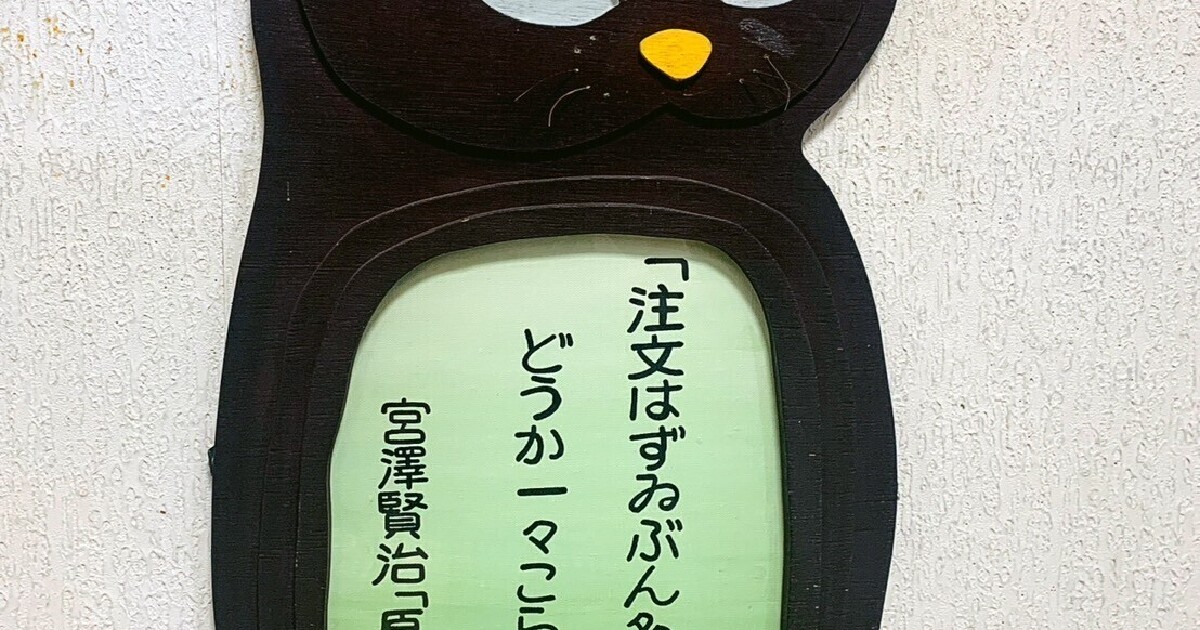 「注文はずゐぶん
どうか一々こ
宮澤賢治「